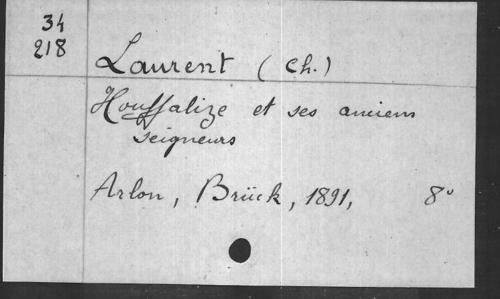 34
218
Laurent (Ch.)
Houffalize et ses anciens
seigneurs
Arlon, Brück, 1891, 8°